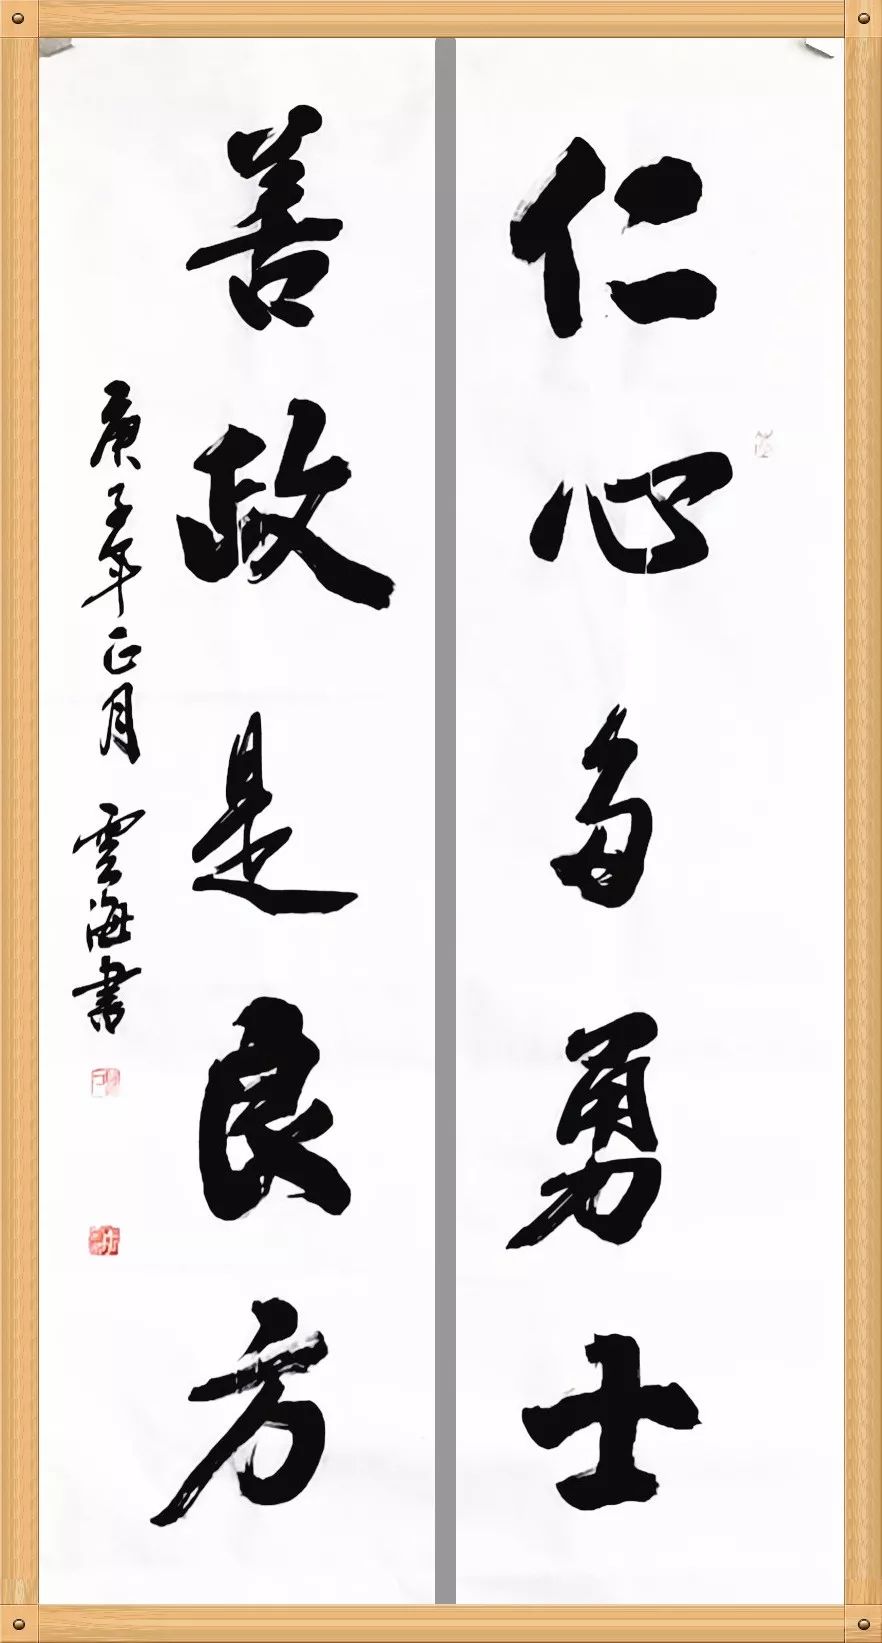 仁心多勇士
善政是良方
庚子年正月 雲海書